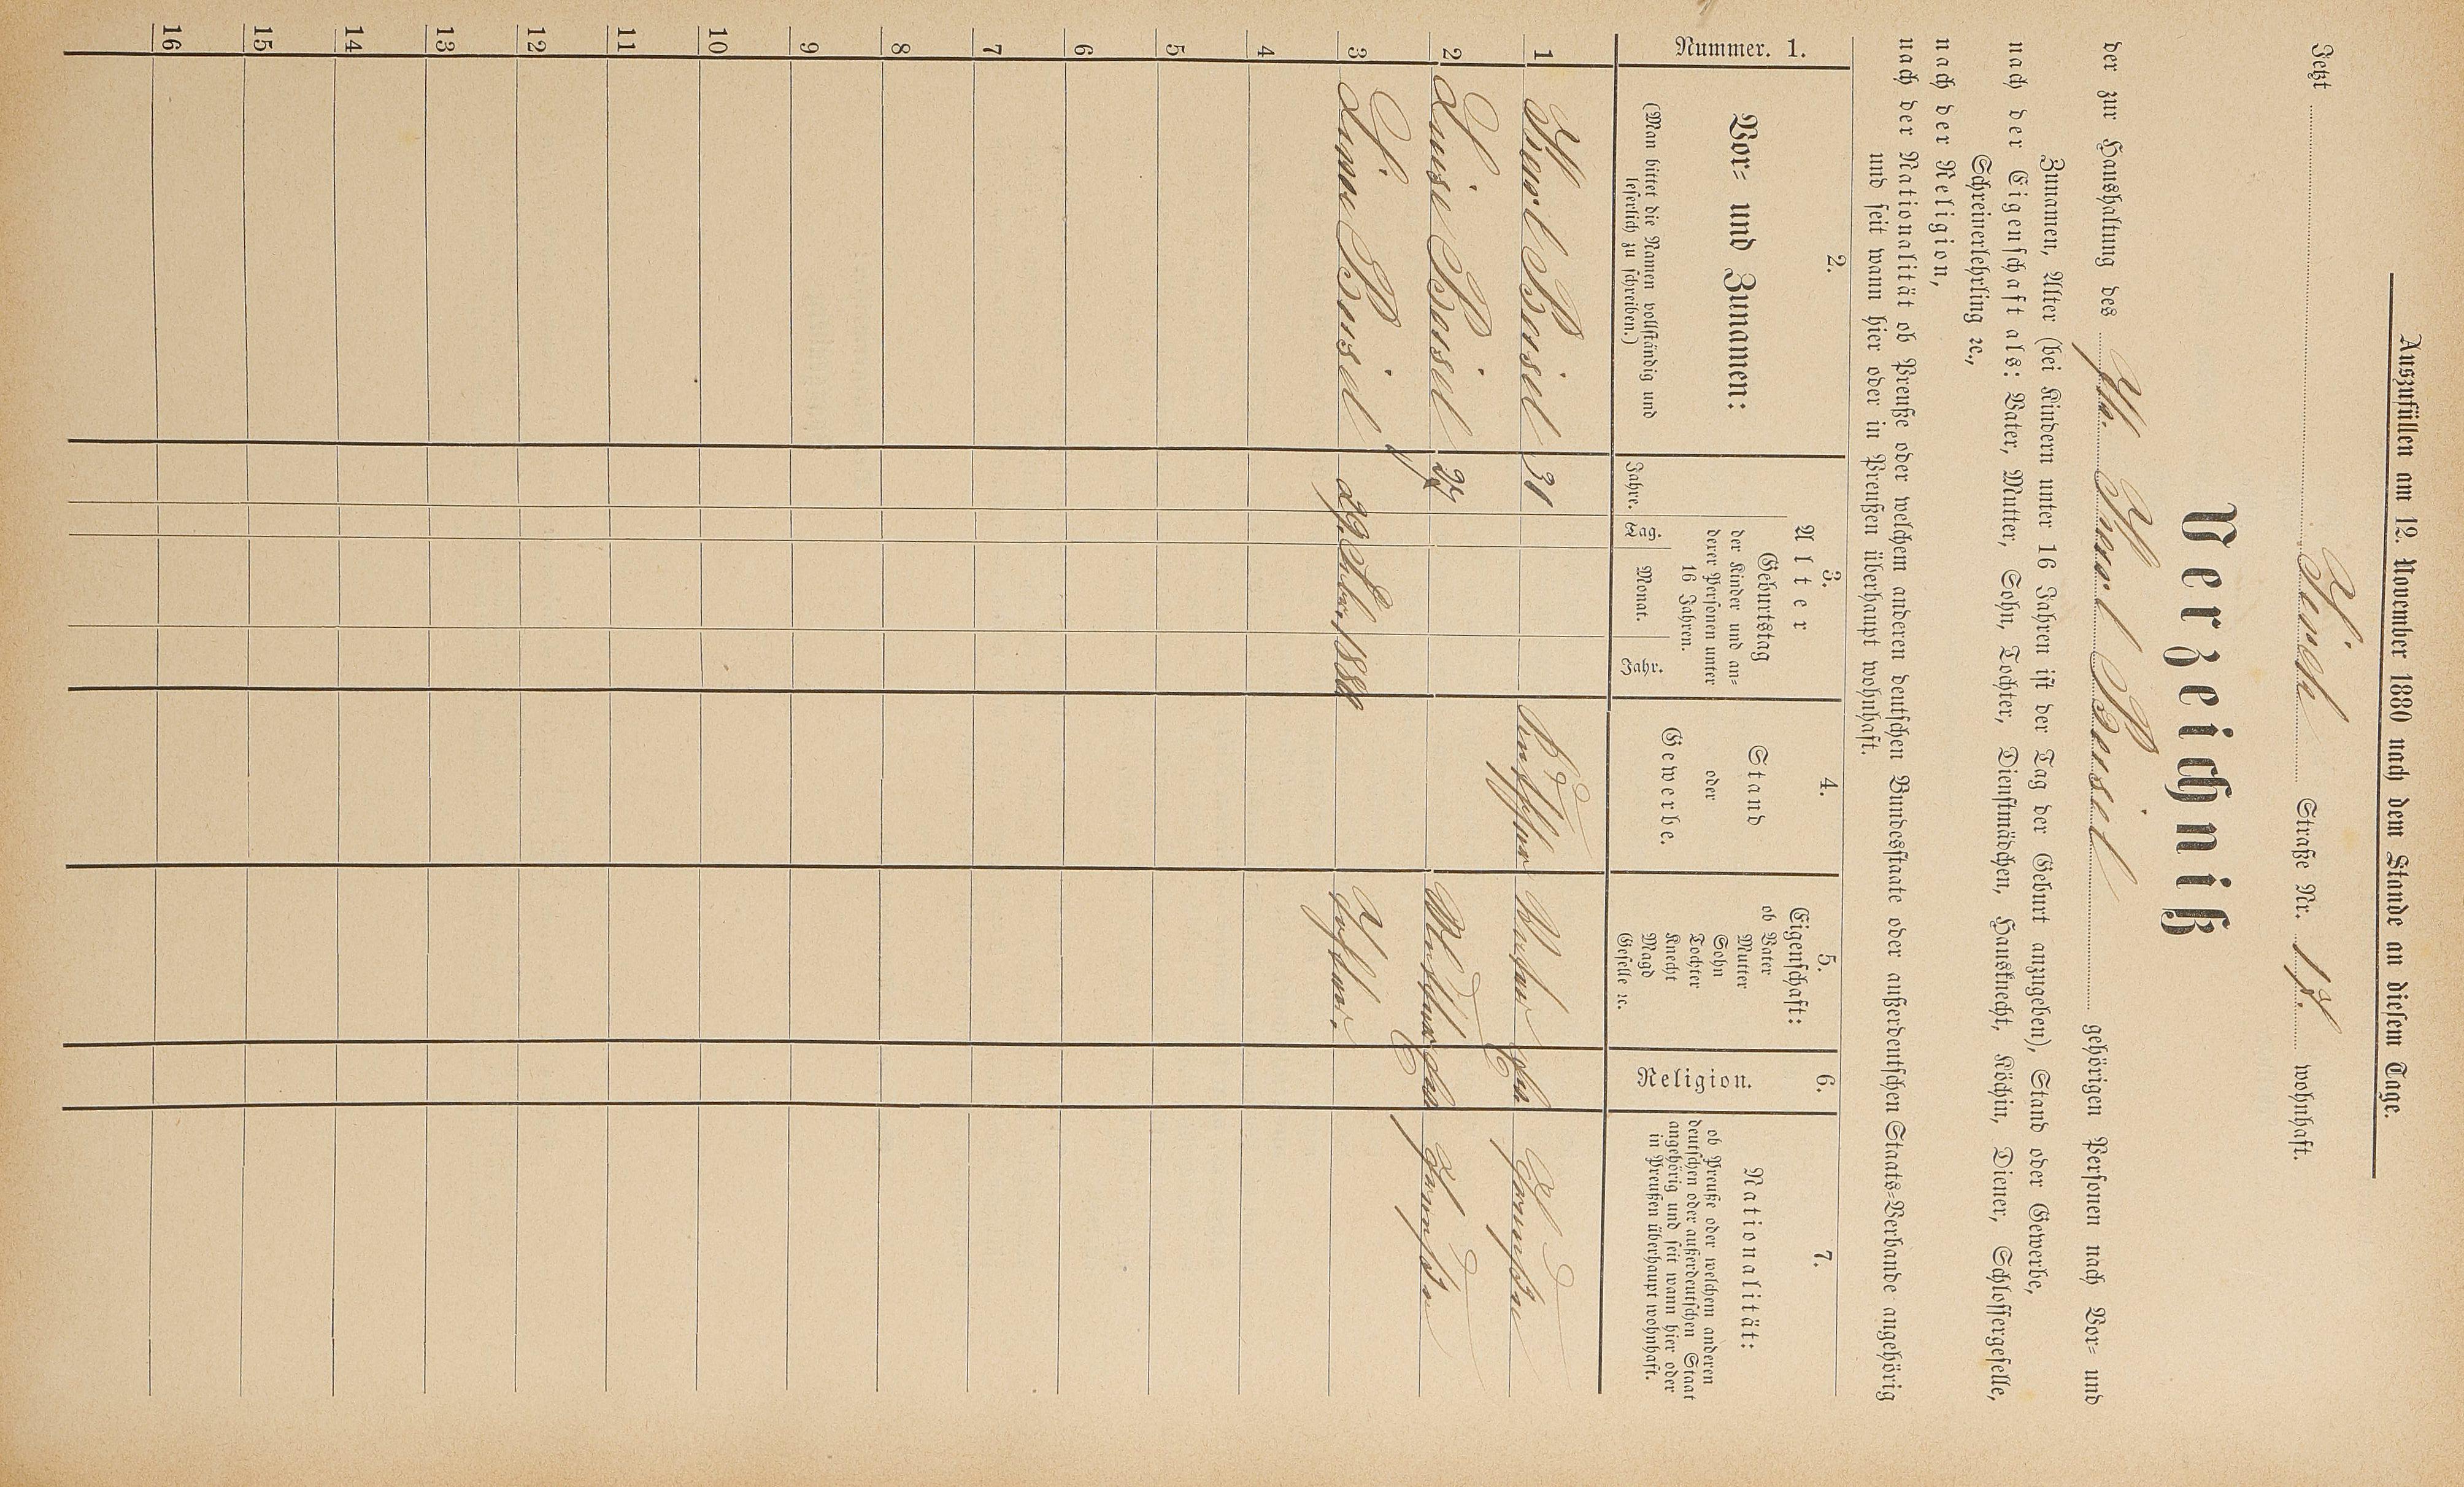 Auszufüllen am 12. November 1880 nach dem Stande an diesem Tage.
Jetzt Straße Nr. 17. wohnhaft.
Verzeichniß
der zur Haushaltung des Karl Beisel gehörigen Personen nach Vor- und
Zunamen, Alter (bei Kindern unter 16 Jahren ist der Tag der Geburt anzugeben), Stand oder Gewerbe,
nach der Eigenschaft als: Vater, Mutter, Sohn, Tochter, Dienstmädchen, Hausknecht, Köchin, Diener, Schlossergeselle,
Schreinerlehrling ꝛc.,
nach der Religion,
nach der Nationalität ob Preuße oder welchem anderen deutschen Bundesstaate oder außerdeutschen Staats-Verbande angehörig
und seit wann hier oder in Preußen überhaupt wohnhaft.
Nummer. 1.
2.
Vor- und Zunamen:
(Man bittet die Namen vollständig und
leserlich zu schreiben.)
3.
Alter
Jahre.
Geburtstag
der Kinder und an-
derer Personen unter
16 Jahren.
Tag. Monat. Jahr.
4.
Stand
oder
Gewerbe.
5.
Eigenschaft:
ob Vater
Mutter
Sohn
Tochter
Knecht
Magd
Geselle ꝛc.
6.
Religion.
7.
Nationalität:
ob Preuße oder welchem anderen
deutschen oder außerdeutschen Staat
angehörig und seit wann hier oder
in Preußen überhaupt wohnhaft.
1 Karl Beisel 31 Vater Preuße
2 Luise Beisel 27 Mutter Preuße
3 Lina Beisel 29. 1880 Tochter.
4
5
6
7
8
9
10
11
12
13
14
15
16